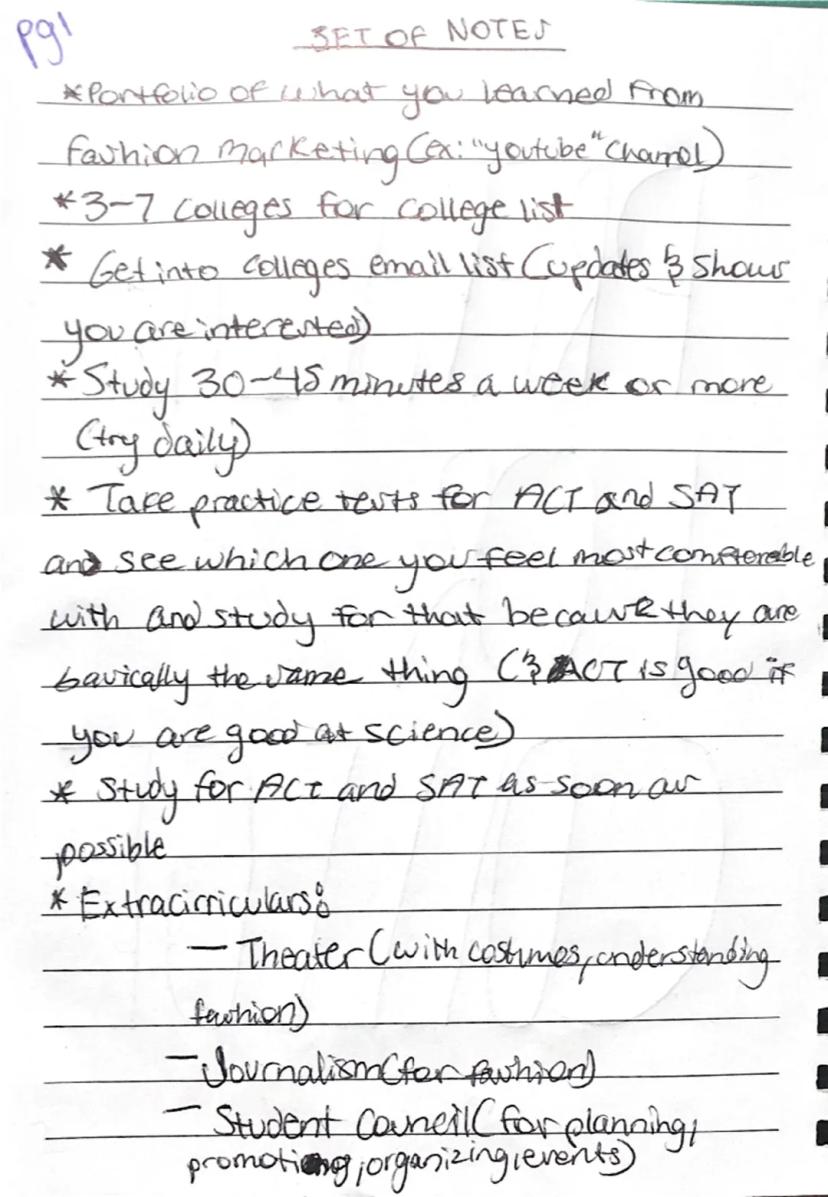 pg1
SET OF NOTES
*Portfolio of what you learned from
fashion marketing (ex: "youtube" channel)
*3-7 colleges for college list
* Get into colleges email list (updates & shows
you are interested)
* Study 30-45 minutes a week or more
(try daily)
* Take practice tests for ACT and SAT
and see which one you feel most comfterable
with and study for that because they are
basically the same thing (& ACT is good if
you are good at science)
* Study for ACT and SAT as soon as
possible
* Extracirriculars:
— Theater (with costumes, understanding
fashion)
— Journalism (for fashion)
— Student Council (for planning,
promoting, organizing, events)